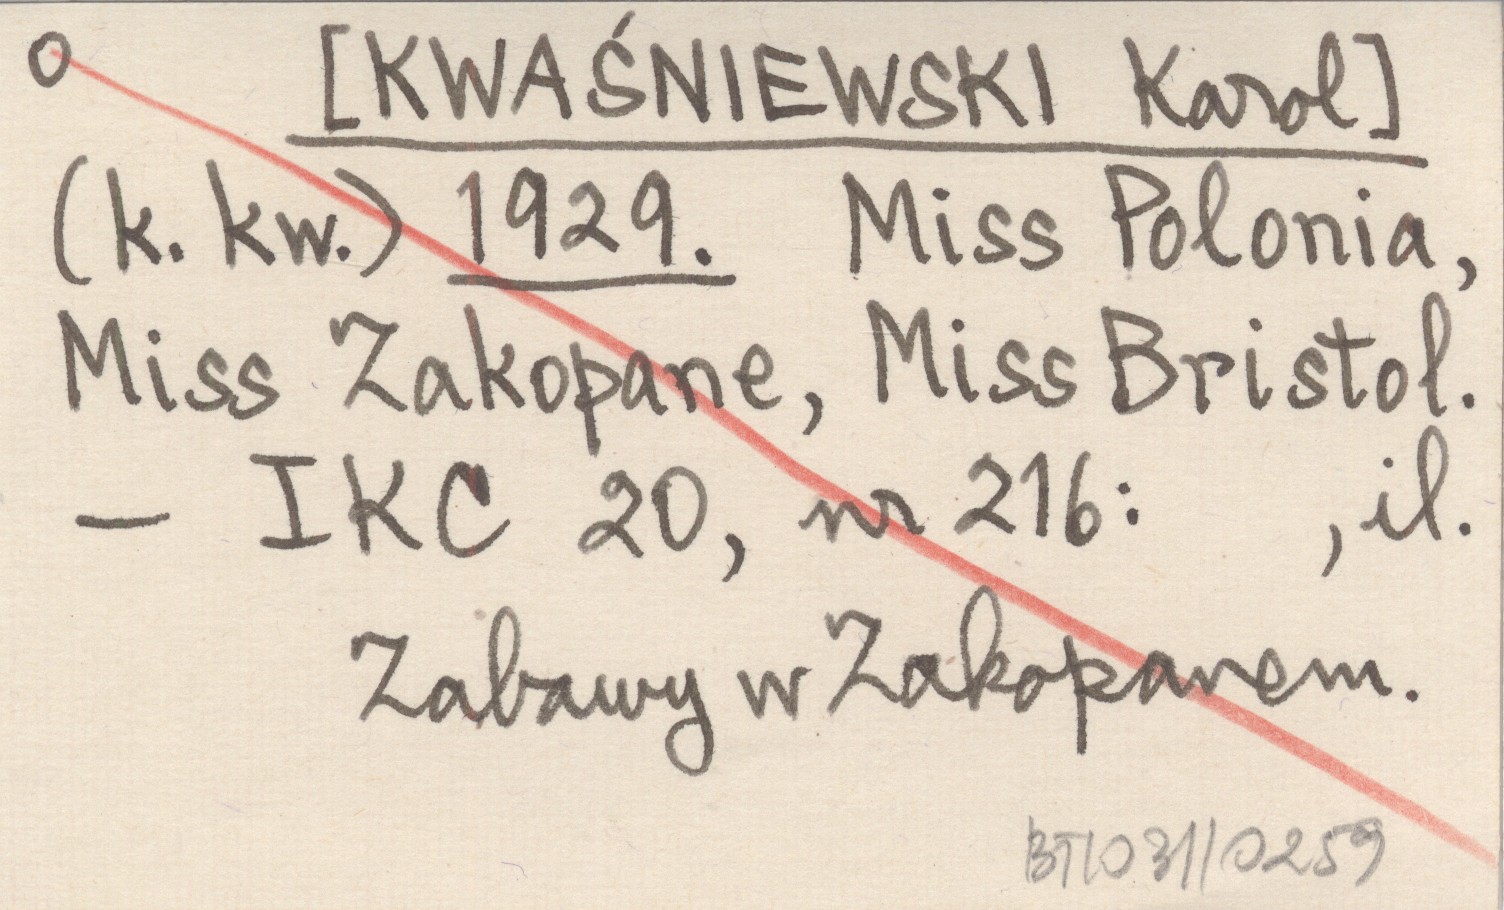 O [KWAŚNIEWSKI Karol]
(k. kw.) 1929. Miss Polonia,
Miss Zakopane, Miss Bristol.
— IKC 20, nr 216: , il.
Zabawy w Zakopanem.
BT/031/0259